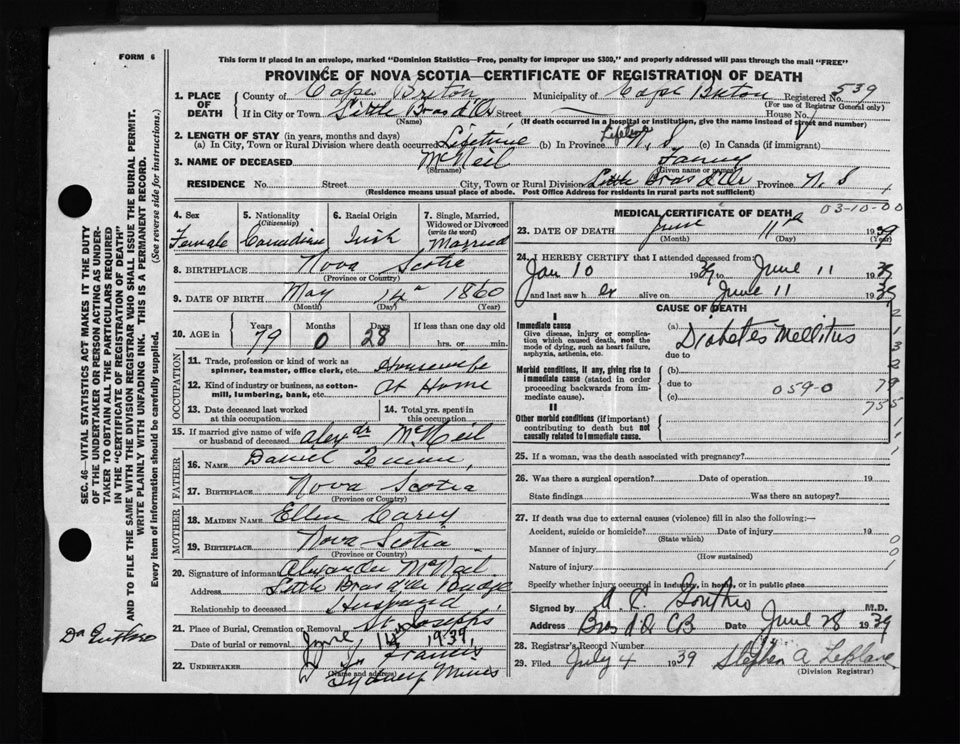 FORM 6
This form if placed in an envelope, marked "Dominion Statistics—Free, penalty for improper use $300," and properly addressed will pass through the mail "FREE"
PROVINCE OF NOVA SCOTIA—CERTIFICATE OF REGISTRATION OF DEATH
1. PLACE OF DEATH County of Cape Breton Municipality of Cape Breton Registered No. 539
(For use of Registrar General only)
If in City or Town Little Bras d'Or Street — House No.
(Name) (If death occurred in a hospital or institution, give the name instead of street and number)
2. LENGTH OF STAY (in years, months and days)
(a) In City, Town or Rural Division where death occurred Lifetime (b) In Province N. S (c) In Canada (if immigrant)
3. NAME OF DECEASED McNeil Fanny
(Surname) (Given name or names)
RESIDENCE No. Street City, Town or Rural Division Little Bras d'Or Province N. S
(Residence means usual place of abode. Post Office Address for residents in rural parts not sufficient)
4. Sex Female
5. Nationality (Citizenship) Canadian
6. Racial Origin Irish
7. Single, Married, Widowed or Divorced (write the word) Married
8. BIRTHPLACE Nova Scotia
(Province or Country)
9. DATE OF BIRTH May 14 1860
(Month) (Day) (Year)
10. AGE in Years 79 Months 0 Days 28 If less than one day old hrs. or min.
OCCUPATION
11. Trade, profession or kind of work as spinner, teamster, office clerk, etc. Housewife
12. Kind of industry or business, as cotton-mill, lumbering, bank, etc. At Home
13. Date deceased last worked at this occupation
14. Total yrs. spent in this occupation
15. If married give name of wife or husband of deceased Alexdr McNeil
FATHER
16. NAME Daniel
17. BIRTHPLACE Nova Scotia
(Province or Country)
MOTHER
18. MAIDEN NAME Ellen Carey
19. BIRTHPLACE Nova Scotia
(Province or Country)
20. Signature of informant Alexander McNeil
Address Little Bras d'Or Bridge
Relationship to deceased Husband
21. Place of Burial, Cremation or Removal St Josephs
Date of burial or removal June 14 1939
22. UNDERTAKER Francis
Sydney Mines
(Name and address)
MEDICAL CERTIFICATE OF DEATH 03-10-00
23. DATE OF DEATH June 11 1939
(Month) (Day) (Year)
24. I HEREBY CERTIFY that I attended deceased from:
Jan 10 1939 to June 11 1939
and last saw her alive on June 11 1939
CAUSE OF DEATH
I
Immediate cause
Give disease, injury or complication which caused death, not the mode of dying, such as heart failure, asphyxia, asthenia, etc.
(a) Diabetes Mellitus
due to
Morbid conditions, if any, giving rise to immediate cause (stated in order proceeding backwards from immediate cause).
(b)
due to 059-0
(c)
II
Other morbid conditions (if important) contributing to death but not causally related to immediate cause.
25. If a woman, was the death associated with pregnancy?
26. Was there a surgical operation? Date of operation 19
State findings Was there an autopsy?
27. If death was due to external causes (violence) fill in also the following:—
Accident, suicide or homicide? Date of injury 19
(State which)
Manner of injury
(How sustained)
Nature of injury
Specify whether injury occurred in industry, in home, or in public place
Signed by M.D.
Address Bras d'Or CB Date June 28 1939
28. Registrar's Record No.
29. Filed July 4 1939 Stephen A. LeBlanc
(Division Registrar)
SEC. 46—VITAL STATISTICS ACT MAKES IT THE DUTY
OF THE UNDERTAKER OR PERSON ACTING AS UNDER-
TAKER TO OBTAIN ALL THE PARTICULARS REQUIRED
IN THE "CERTIFICATE OF REGISTRATION OF DEATH"
AND TO FILE THE SAME WITH THE DIVISION REGISTRAR WHO SHALL ISSUE THE BURIAL PERMIT.
WRITE PLAINLY WITH UNFADING INK. THIS IS A PERMANENT RECORD.
Every item of information should be carefully supplied. (See reverse side for instructions.)